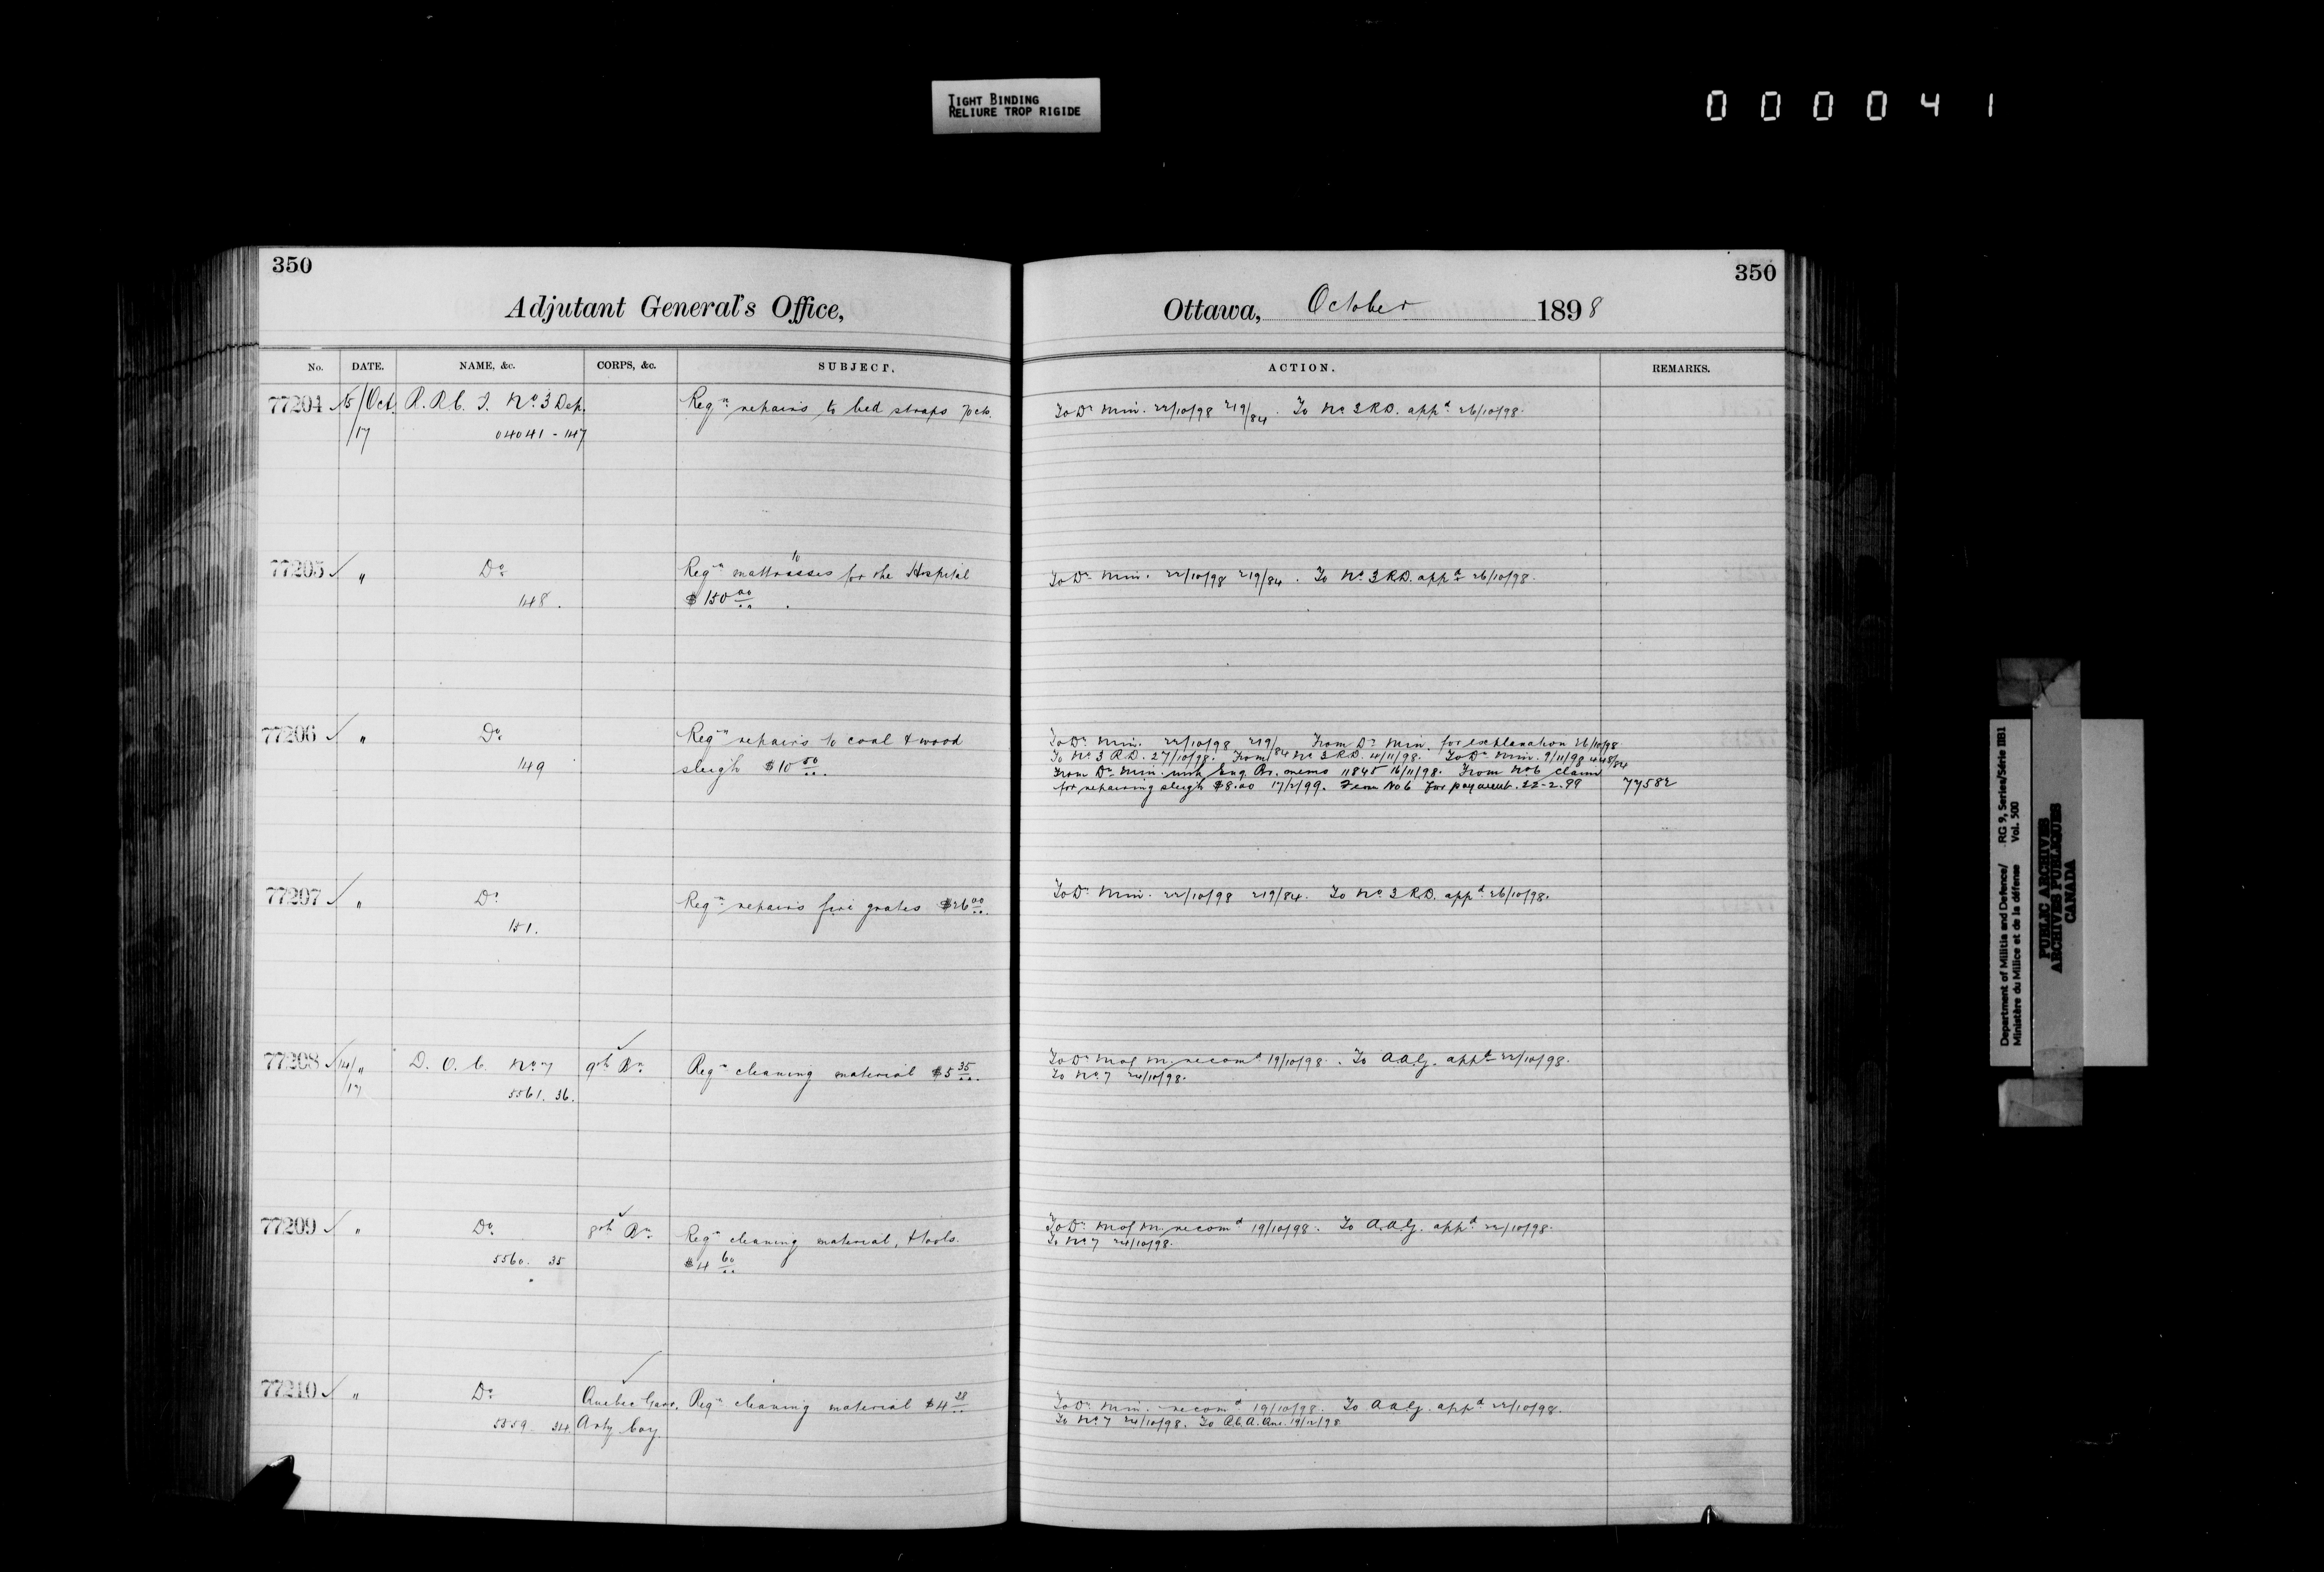 TIGHT BINDING
RELIURE TROP RIGIDE
000041
350
Adjutant General's Office,
No. DATE. NAME, &c. CORPS, &c. SUBJECT.
77204 15/Oct. R.R.C.I. No. 3 Dep. Reqn repairs to bed straps 70 cts.
/17 04041-147
77205 " Do. Reqn mattrasses for the Hospital
148. $150 00
77206 " Do. Reqn repairs to coal & wood
149 sleigh $10 50
77207 " Do. Reqn repairs fire grates $26 00
151.
77208 14/" D.O.C. No 7 9th Bn. Reqn cleaning material $5 35
/17 5561. 36.
77209 " Do. 8th Bn. Reqn cleaning material, & tools.
5560. 35 $4 60
77210 " Do. Quebec Garr. Reqn cleaning material $4 28
5559. 34. Arty Coy.
350
Ottawa, October 1898
ACTION. REMARKS.
To Dr. Min. 22/10/98 219/84. To No. 3 R.D. appd 26/10/98.
To Dr. Min. 22/10/98 219/84. To No. 3 R.D. appd 26/10/98.
To Dr. Min. 22/10/98 219/84 From Dr. Min. for explanation 26/10/98
To No. 3 R.D. 27/10/98. From No 3 R.D. 4/11/98. To Dr. Min. 9/11/98
From Dr. Min. with Eng. Br. memo 11845 16/11/98. From No 6 claim
for repairing sleigh $8.00 17/2/99. From No 6 for payment. 22-2-99 77582
To Dr. Min. 22/10/98 219/84. To No. 3 R.D. appd 26/10/98.
To Dr. M of M. recomd 19/10/98. To A.A.G. appd 22/10/98.
To No. 7 24/10/98.
To Dr. M of M. recomd 19/10/98. To A.A.G. appd 22/10/98.
To No. 7 24/10/98.
To Dr. Min. recomd 19/10/98. To A.A.G. appd 22/10/98.
To No. 7 24/10/98. To 19/12/98
Department of Militia and Defence/ RG 9, Series/Série IIB1
Ministère du Milice et de la défense Vol. 500
PUBLIC ARCHIVES
ARCHIVES PUBLIQUES
CANADA